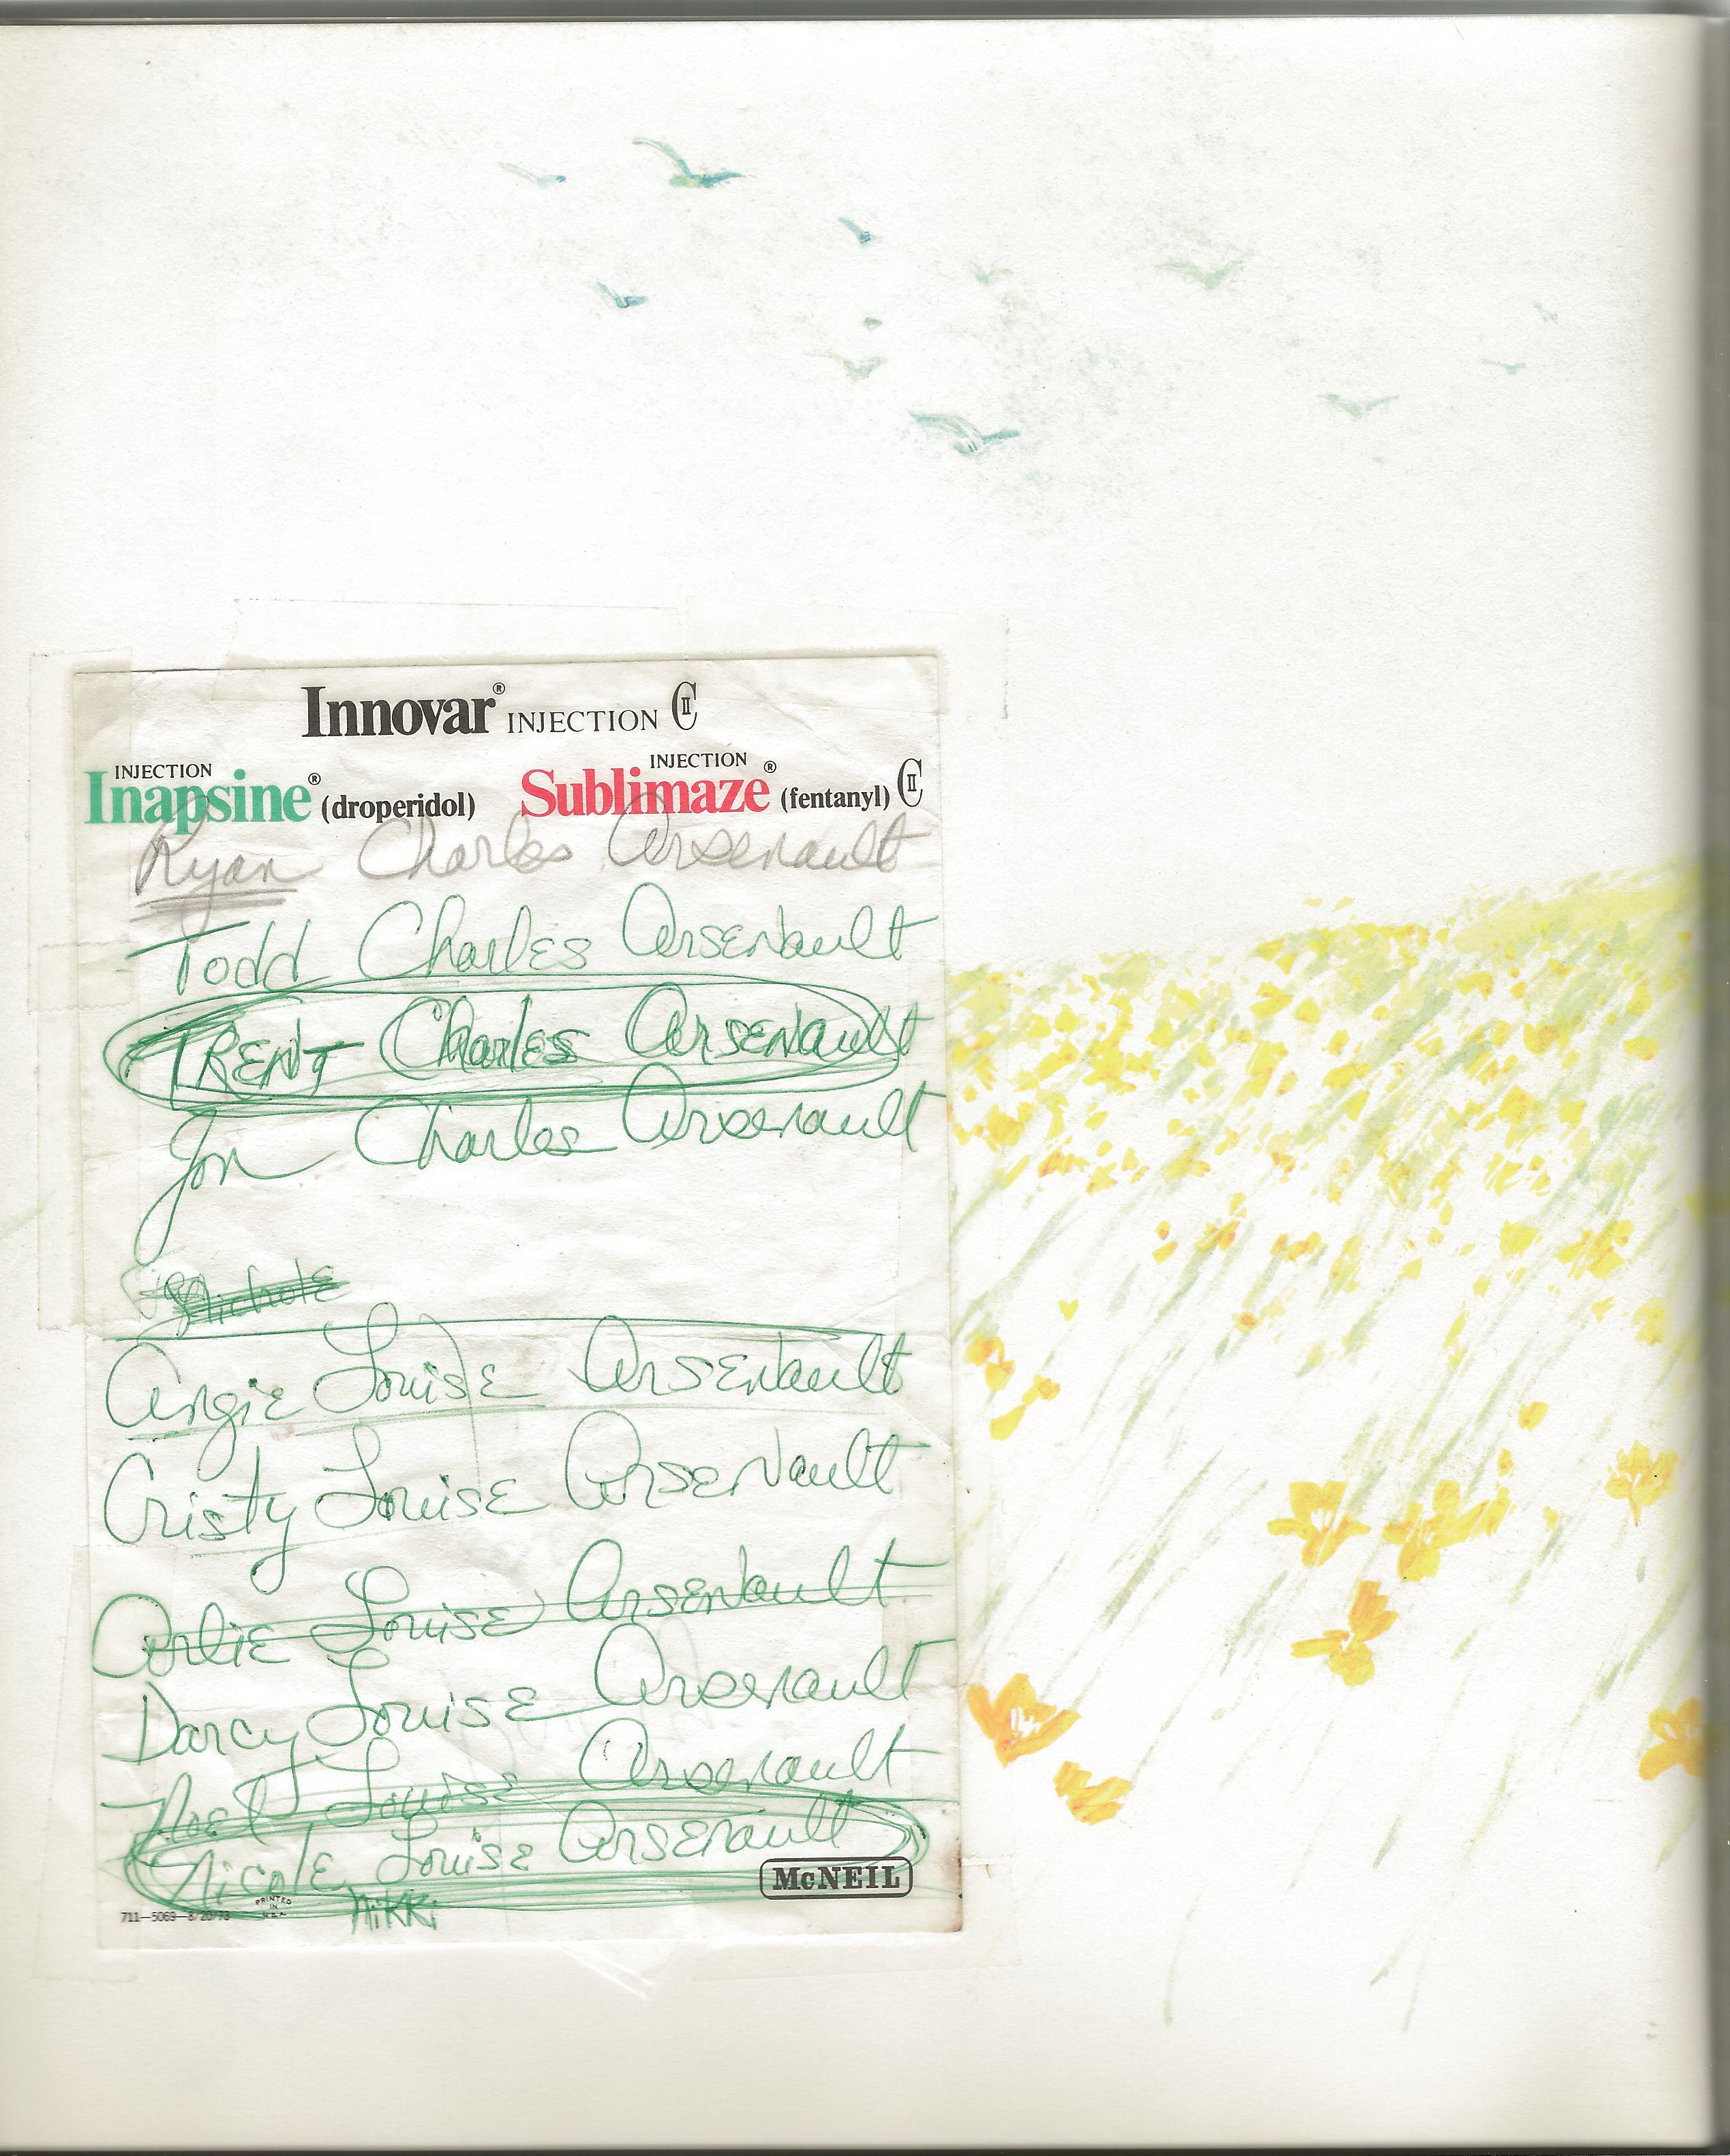 Innovar® INJECTION CII
INJECTION INJECTION
Inapsine® (droperidol) Sublimaze® (fentanyl) CII
Ryan Charles Arsenault
Todd Charles Arsenault
TRENT Charles Arsenault
Jon Charles Arsenault
Nichole
Angie Louise Arsenault
Cristy Louise Arsenault
Carlie Louise Arsenault
Darcy Louise Arsenault
Noel Louise Arsenault
Nicole Louise Arsenault
McNEIL
PRINTED
IN
U.S.A.
711—5069—8/20/73
Nikki